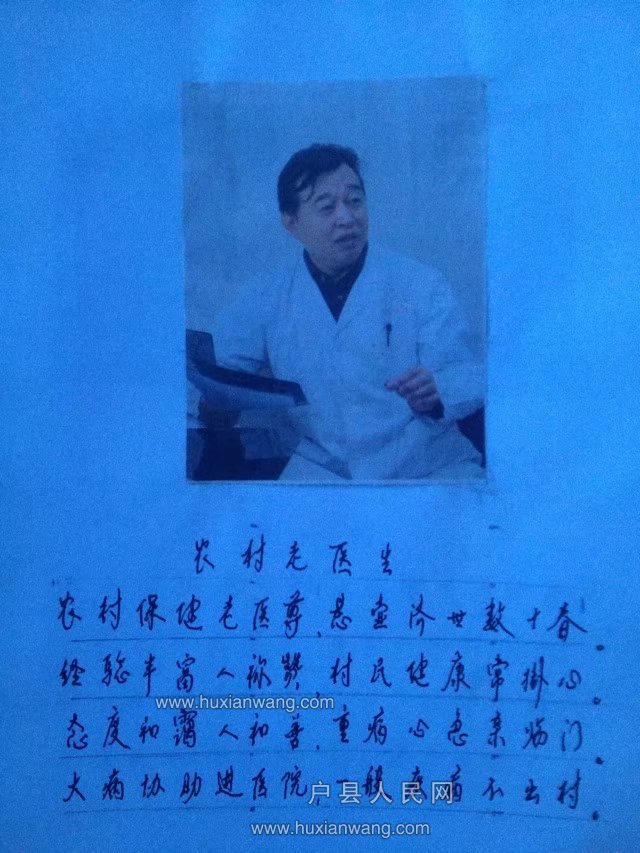 农村老医生
农村保健老医尊,悬壶济世数十春。
经验丰富人称赞,村民健康常掛心。
www.huxianwang.com
态度和霭人和善,重病心急亲临门。
大病协助进医院,一般疾病不出村。
户县人民网
www.huxianwang.com